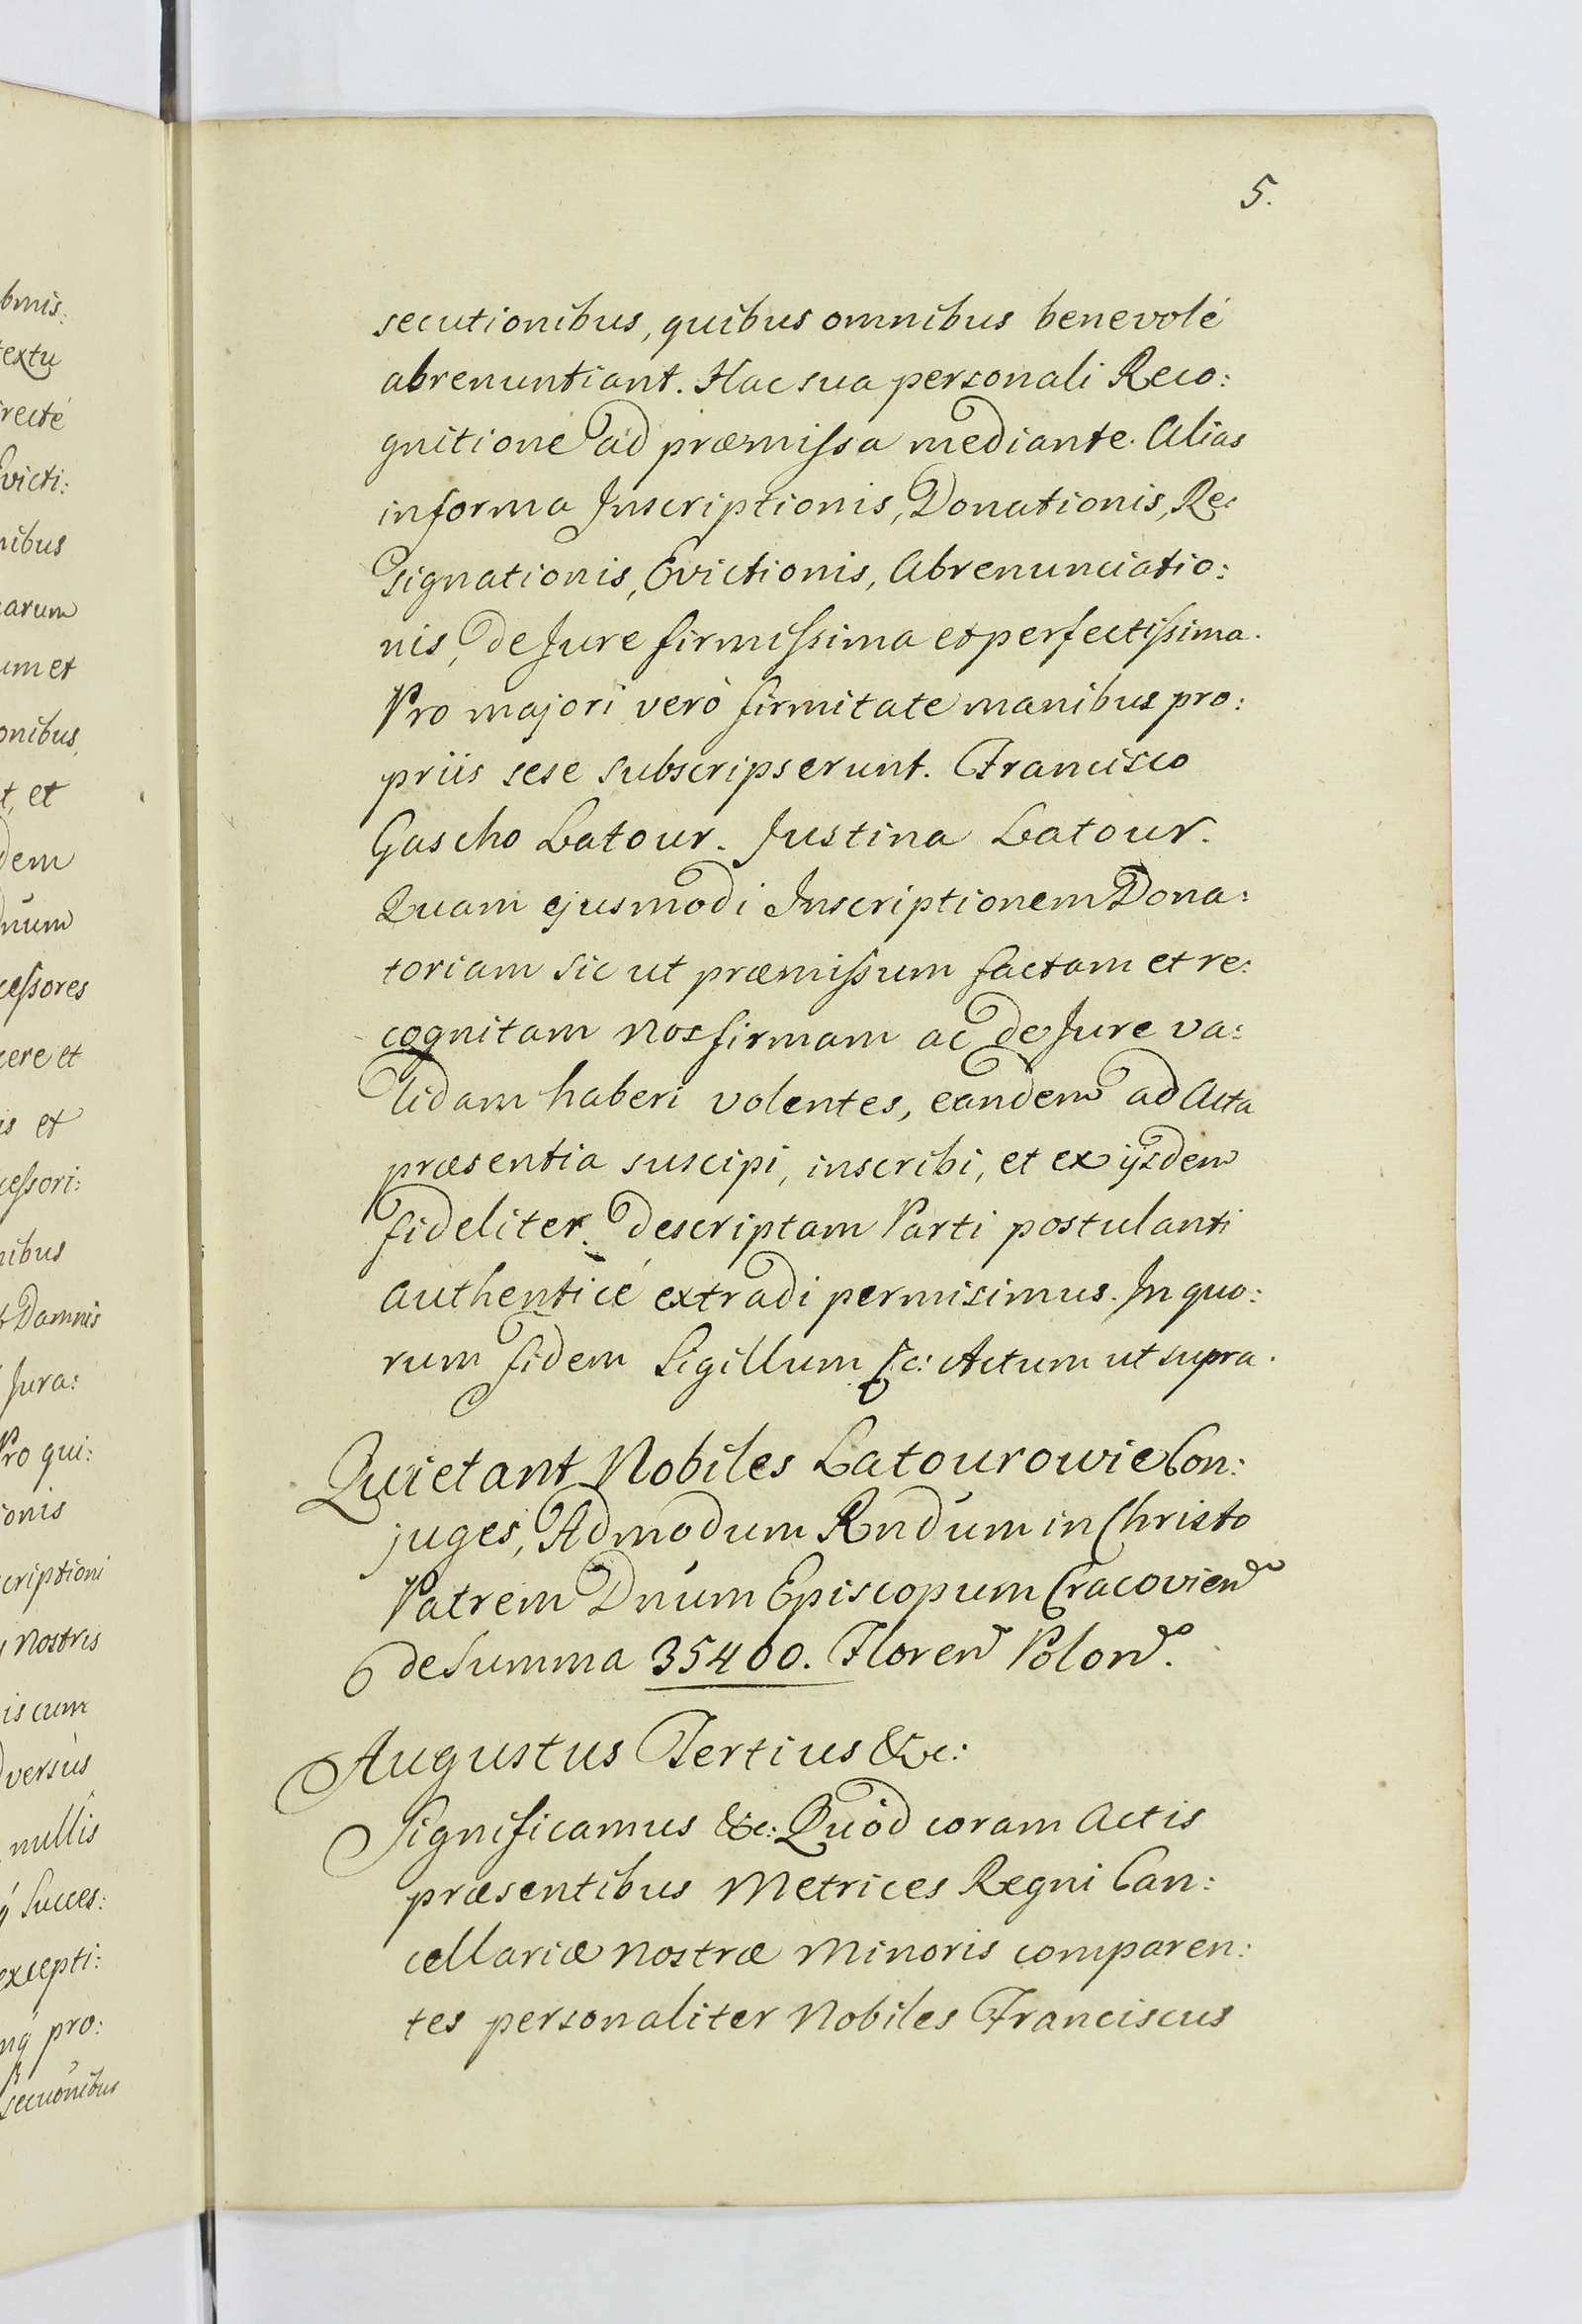 5.
secutionibus, quibus omnibus benevolé
abrenuntiant. Hac sua personali Reco:
gnitione ad præmissa mediante. Alias
informa Inscriptionis, Donationis, Re:
signationis, Evictionis, Abrenunciatio:
nis, de Jure firmissima et perfectissima.
Pro majori verò firmitate manibus pro:
priis sese subscripserunt. Francisco
Gascho Latour. Justina Latour.
Quam ejusmodi Inscriptionem Dona:
toriam sic ut præmissum factam et re:
cognitam nos firmam ac de Jure va:
lidam haberi volentes, eandem ad Acta
præsentia suscipi, inscribi, et ex ijsdem
fideliter descriptam Parti postulanti
authenticé extradi permisimus. In quo:
rum fidem Sigillum &c: Actum ut supra.
Quietant Nobiles Latourowie Con:
juges, Admodum Rndum in Christo
Patrem Dnum Episcopum Cracovien
de Summa 35400. Floren Polon.
Augustus Tertius &c:
Significamus &c: Quòd coram Actis
præsentibus Metrices Regni Can:
cellariæ nostræ Minoris comparen:
tes personaliter Nobiles Franciscus
bmis:
textu
recté
Evicti:
nibus
arum
um et
onibus,
t, et
dem
num
cessores
cere et
is et
cessori:
nibus
Damnis
Jura:
Pro qui:
ionis
criptioni
nostris
is cum
versùs
nullis
Succes:
excepti:
pro:
secutionibus